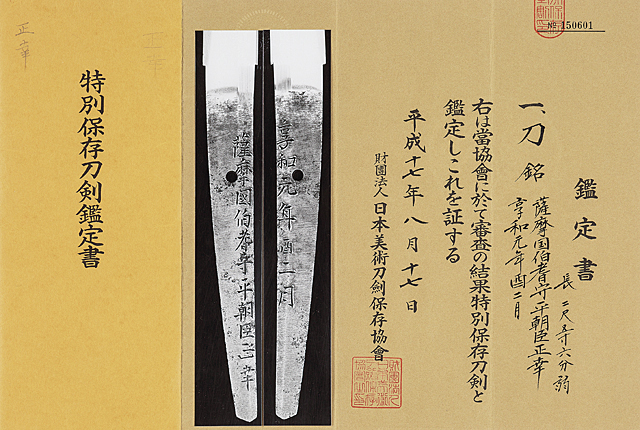 № 150601
鑑定書
一、刀 銘 薩摩国伯耆守平朝臣正幸
享和元年酉二月
長二尺五寸六分弱
右は當協會に於て審査の結果特別保存刀剣と
鑑定しこれを証する
平成十七年八月十七日
財團法人 日本美術刀劍保存協會
享和元年酉二月
薩摩國伯耆守平朝臣正幸
特別保存刀剣鑑定書
正幸